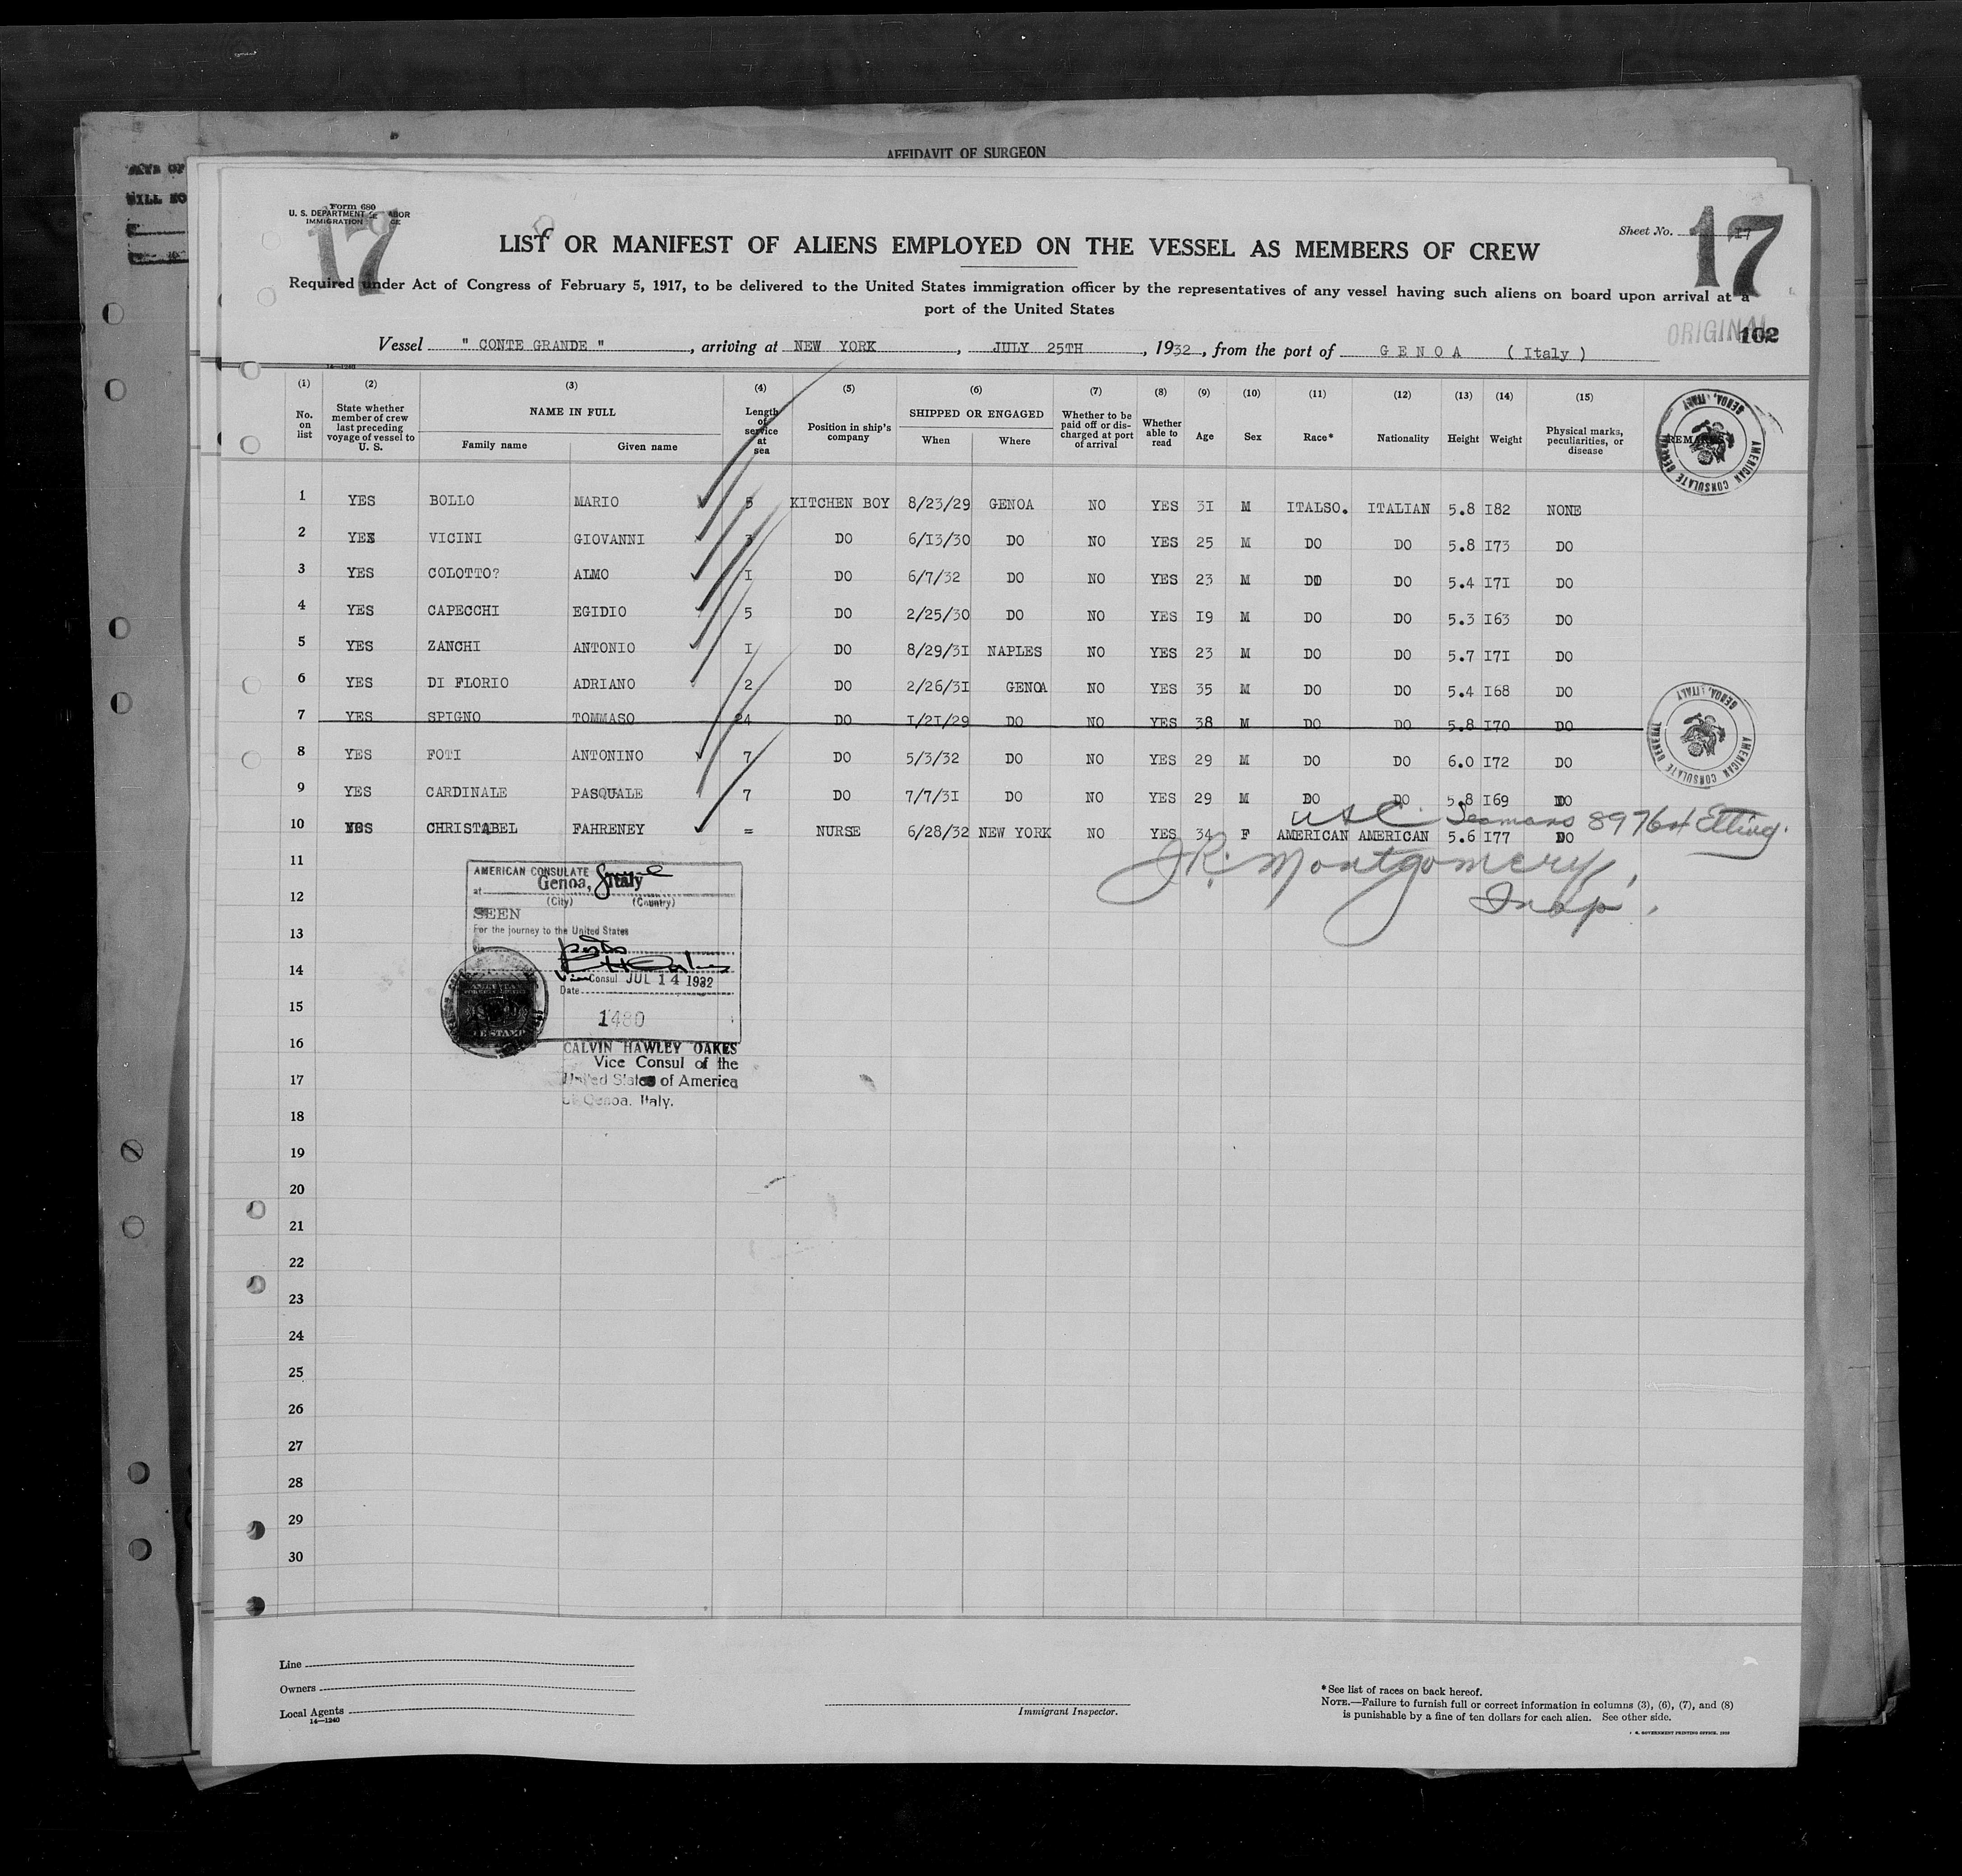 AFFIDAVIT OF SURGEON
WILL
Form 680
U. S. DEPARTMENT
IMMIGRATION
17
LIST OR MANIFEST OF ALIENS EMPLOYED ON THE VESSEL AS MEMBERS OF CREW
Sheet No. 17
17
Required under Act of Congress of February 5, 1917, to be delivered to the United States immigration officer by the representatives of any vessel having such aliens on board upon arrival at a
port of the United States
ORIGINAL
102
Vessel " CONTE GRANDE " , arriving at NEW YORK , JULY 25TH , 1932 , from the port of GENOA ( Italy )
14—1240
(1) (2) (3) (4) (5) (6) (7) (8) (9) (10) (11) (12) (13) (14) (15)
No. on list State whether member of crew last preceding voyage of vessel to U. S. NAME IN FULL Family name Given name Length of service at sea Position in ship's company SHIPPED OR ENGAGED When Where Whether to be paid off or discharged at port of arrival Whether able to read Age Sex Race* Nationality Height Weight Physical marks, peculiarities, or disease REMARKS
AMERICAN CONSULATE GENERAL GENOA, ITALY
1 YES BOLLO MARIO 5 KITCHEN BOY 8/23/29 GENOA NO YES 3I M ITALSO. ITALIAN 5.8 I82 NONE
2 YES VICINI GIOVANNI 3 DO 6/I3/30 DO NO YES 25 M DO DO 5.8 I73 DO
3 YES COLOTTO? ALMO I DO 6/7/32 DO NO YES 23 M DO DO 5.4 I7I DO
4 YES CAPECCHI EGIDIO 5 DO 2/25/30 DO NO YES I9 M DO DO 5.3 I63 DO
5 YES ZANCHI ANTONIO I DO 8/29/3I NAPLES NO YES 23 M DO DO 5.7 I7I DO
6 YES DI FLORIO ADRIANO 2 DO 2/26/3I GENOA NO YES 35 M DO DO 5.4 I68 DO
7 YES SPIGNO TOMMASO 24 DO I/2I/29 DO NO YES 38 M DO DO 5.8 I70 DO
AMERICAN CONSULATE GENERAL GENOA, ITALY
8 YES FOTI ANTONINO 7 DO 5/3/32 DO NO YES 29 M DO DO 6.0 I72 DO
9 YES CARDINALE PASQUALE 7 DO 7/7/3I DO NO YES 29 M DO DO 5.8 I69 DO
Seamans 89764 Etting.
10 CHRISTABEL FAHRENEY = NURSE 6/28/32 NEW YORK NO YES 34 F AMERICAN AMERICAN 5.6 I77 DO
J.R. Montgomery,
Insp.
11
12
13
14
15
16
17
18
19
20
21
22
23
24
25
26
27
28
29
30
AMERICAN CONSULATE
at Genoa, Italy
(City) (Country)
SEEN
For the journey to the United States
Vice Consul JUL 14 1932
Date
1480
CALVIN HAWLEY OAKES
Vice Consul of the
United States of America
Genoa. Italy.
Line
Owners
Local Agents
14—1240
Immigrant Inspector.
*See list of races on back hereof.
NOTE.—Failure to furnish full or correct information in columns (3), (6), (7), and (8)
is punishable by a fine of ten dollars for each alien. See other side.
GOVERNMENT PRINTING OFFICE